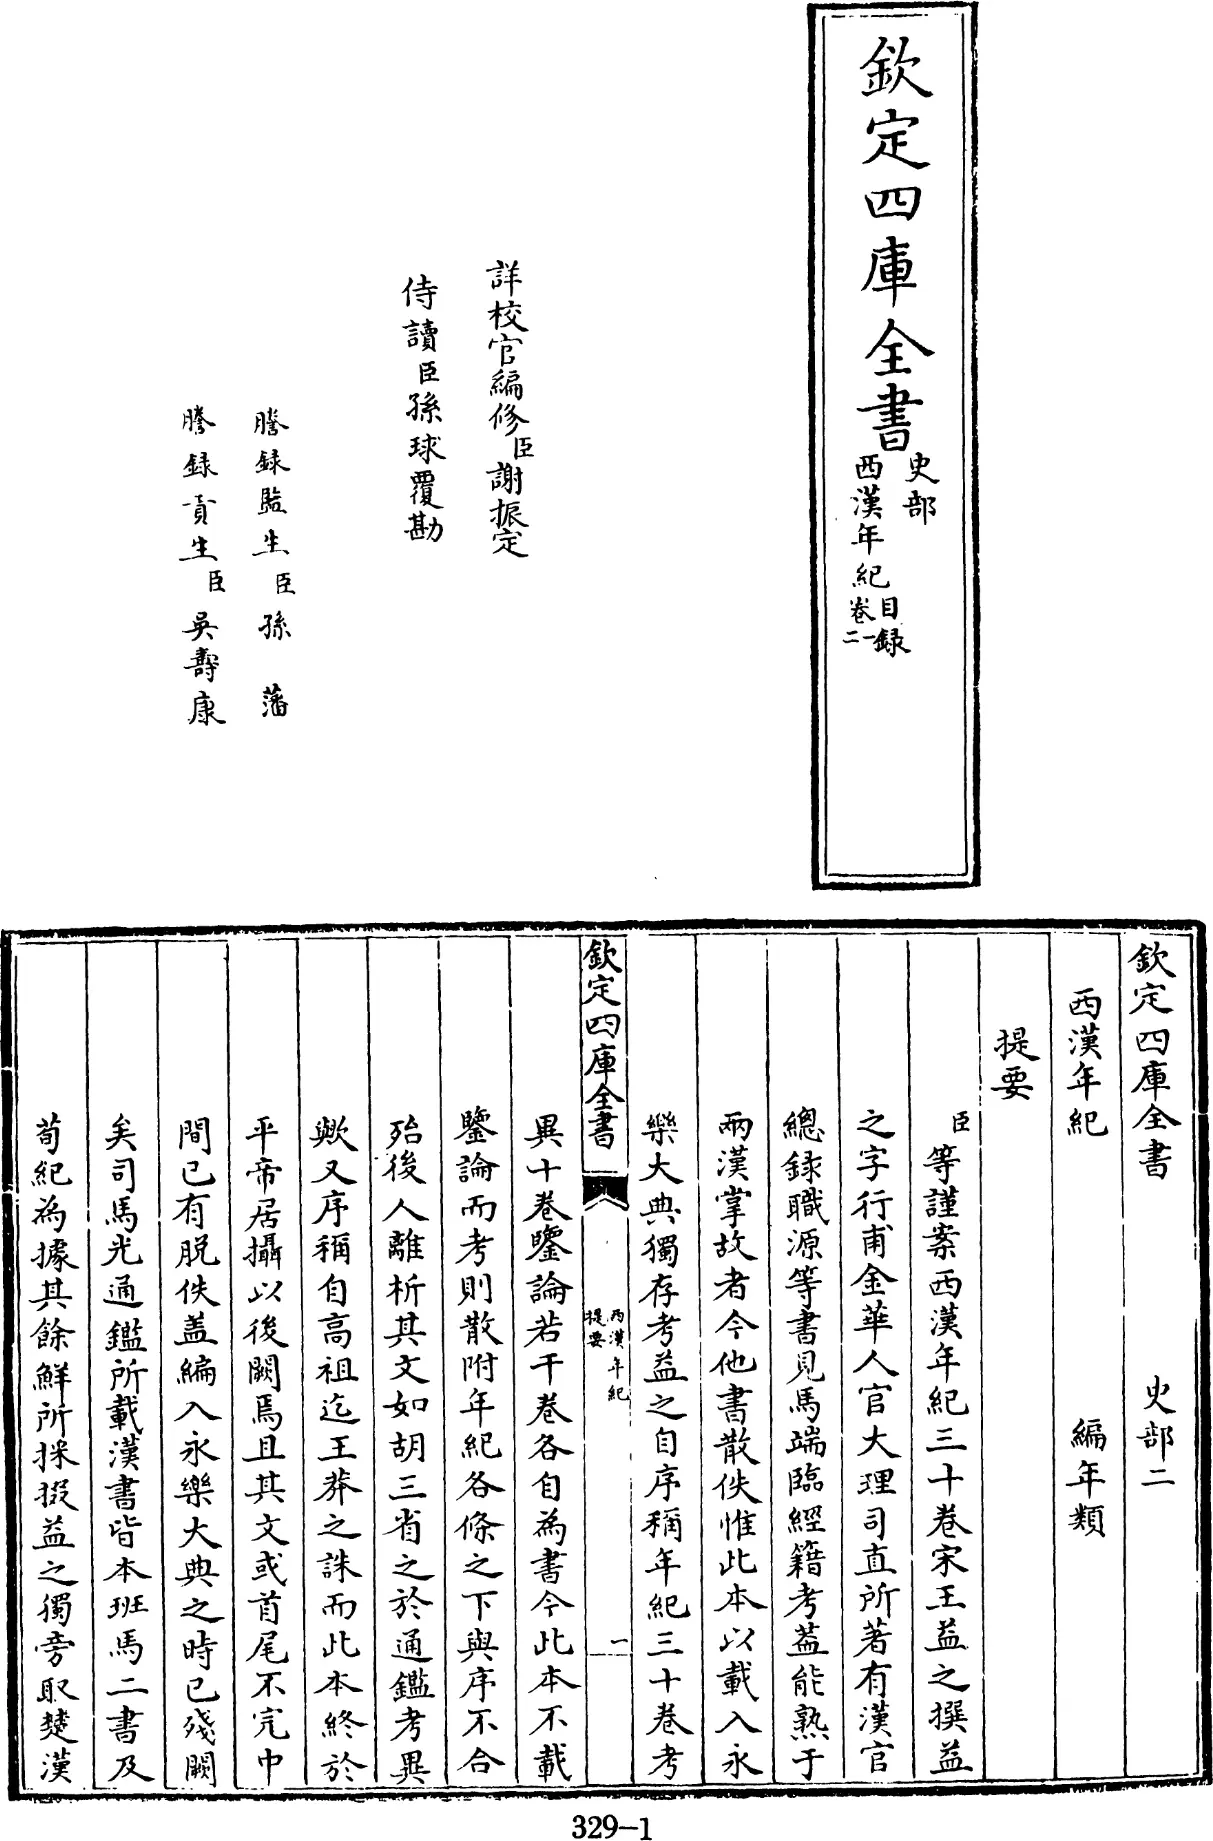 欽定四庫全書
史部
西漢年紀
目録
卷一
二
詳校官編修臣謝振定
侍讀臣孫球覆勘
謄録監生臣孫藩
謄録貢生臣吳壽康
欽定四庫全書 史部二
西漢年紀 編年類
提要
臣等謹案西漢年紀三十卷宋王益之撰益
之字行甫金華人官大理司直所著有漢官
總録職源等書見馬端臨經籍考蓋能熟于
兩漢掌故者今他書散佚惟此本以載入永
樂大典獨存考益之自序稱年紀三十卷考
欽定四庫全書
西漢年紀
提要
一
異十卷鑒論若干卷各自為書今此本不載
鑒論而考則散附年紀各條之下與序不合
殆後人離析其文如胡三省之於通鑑考異
歟又序稱自高祖迄王莽之誅而此本終於
平帝居攝以後闕焉且其文或首尾不完中
間已有脱佚盖編入永樂大典之時已殘闕
矣司馬光通鑑所載漢書皆本班馬二書及
荀紀為據其餘鮮所採掇益之獨旁取楚漢
329-1